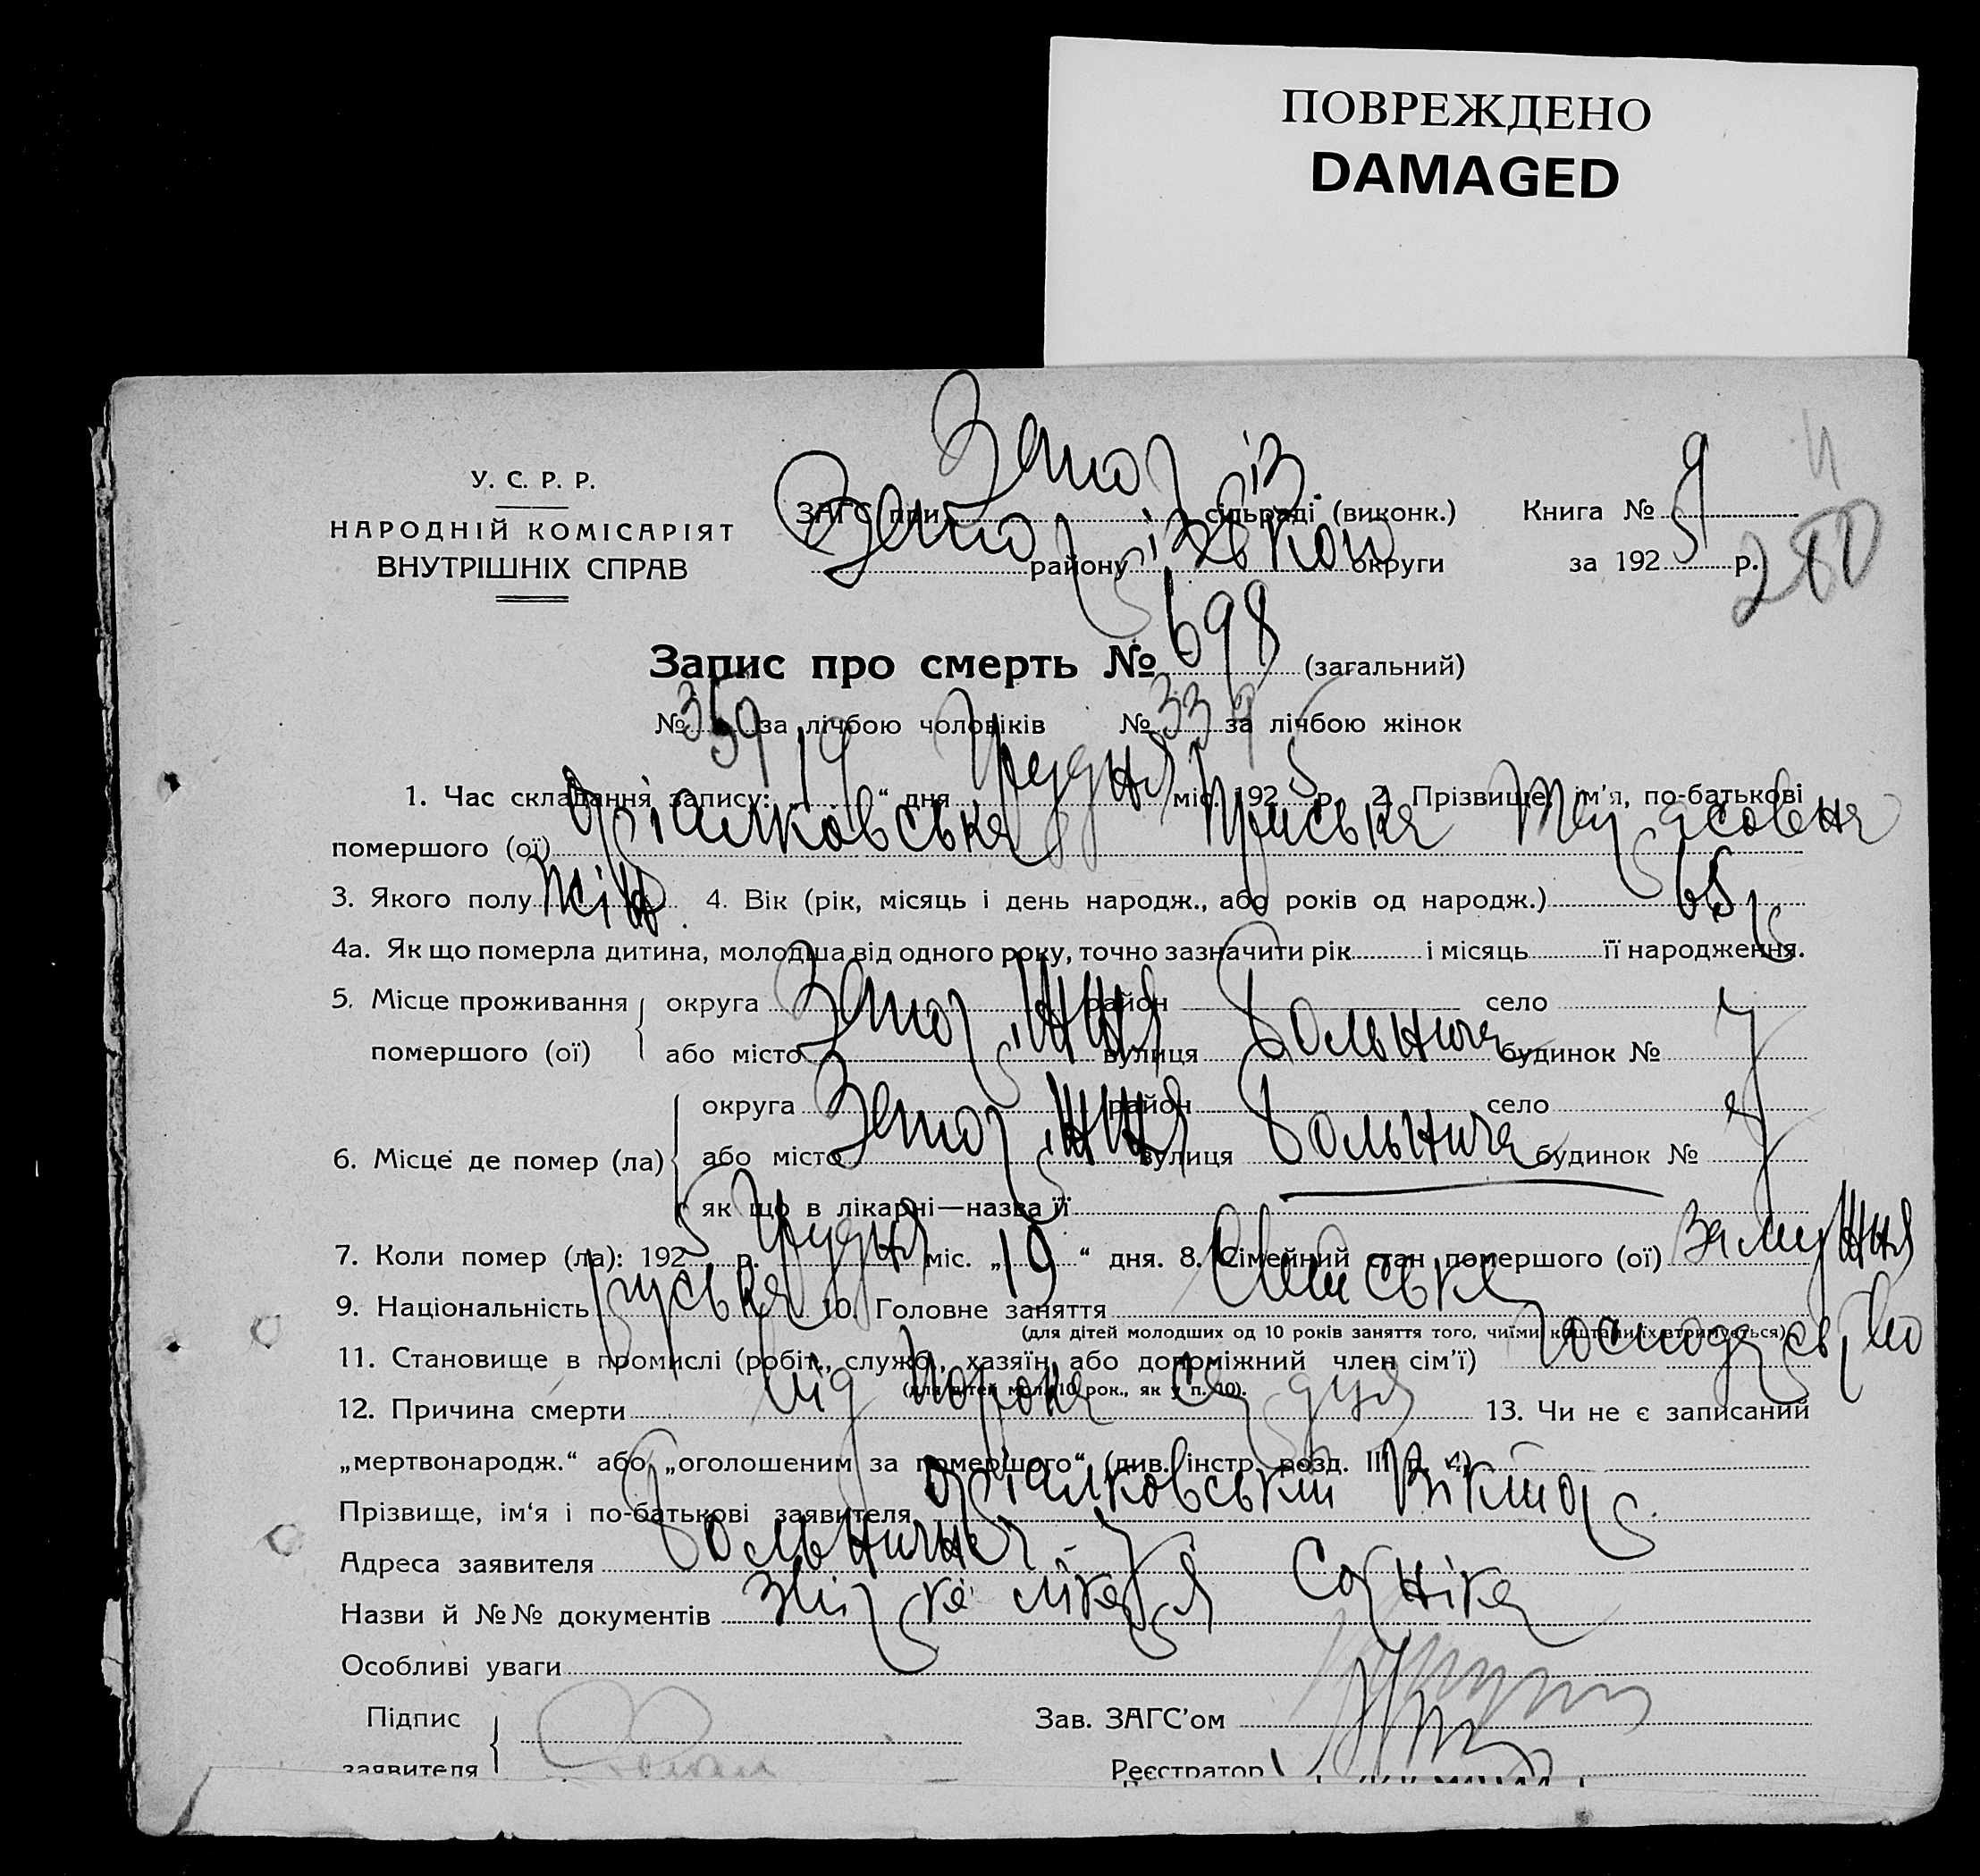 ПОВРЕЖДЕНО
DAMAGED
У. С. Р. Р.
НАРОДНІЙ КОМІСАРІЯТ
ВНУТРІШНІХ СПРАВ
ЗАГС при Запоріз. сільраді (виконк.)
Запорізької району округи
Книга № 9
за 192 р.
4
280
Запис про смерть № 698 (загальний)
№ 359 за лічбою чоловіків № 339 за лічбою жінок
1. Час складання запису: „19“ дня Грудня міс. 1925 р. 2. Прізвище, ім'я, по-батькові
помершого (ої) Фіалковська
3. Якого полу жін. 4. Вік (рік, місяць і день народж., або років од народж.) 65 р
4а. Як що померла дитина, молодша від одного року, точно зазначити рік і місяць її народження.
5. Місце проживання помершого (ої)
округа район село
або місто Запоріжжя вулиця Больнична будинок № 7
6. Місце де помер (ла)
округа район село
або місто Запоріжжя вулиця Больнична будинок № 7
як що в лікарні—назва її
7. Коли помер (ла): 1925 р. Грудня міс. „19“ дня. 8. Сімейний стан помершого (ої) замужня
9. Національність руська 10. Головне заняття
(для дітей молодших од 10 років заняття того, чиїми коштами їх утримується)
11. Становище в промислі (робіт., служб., хазяїн, або допоміжний член сім'ї) господарство
(для дітей мол. 10 рок., як у п. 10).
12. Причина смерти від порока сердця 13. Чи не є записаний
„мертвонародж.“ або „оголошеним за помершого“ (див. інстр. розд. III п. 4)
Прізвище, ім'я і по-батькові заявителя Фіалковський Віктор
Адреса заявителя Больнична 7
Назви й №№ документів лікаря
Особливі уваги
Підпис
заявителя
Зав. ЗАГС'ом
Реєстратор